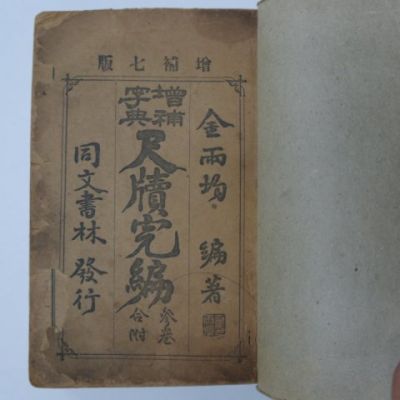 增補七版
金雨均 編著
增補字典
尺牘完編
參卷合附
同文書林 發行